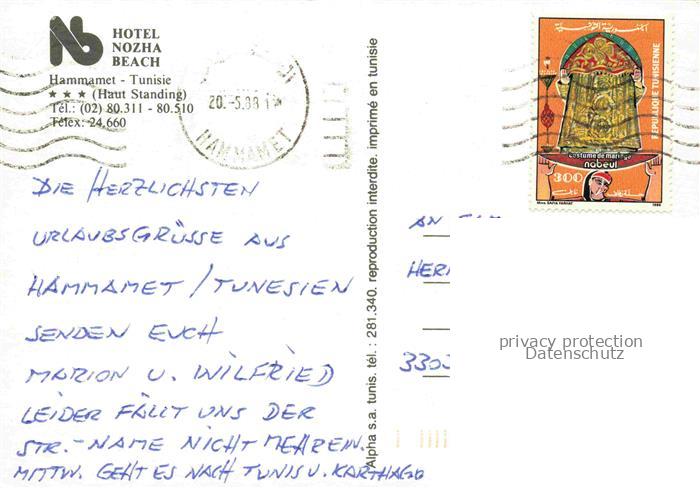 HOTEL
NOZHA
BEACH
Hammamet - Tunisie
★ ★ ★ (Haut Standing)
Tél.: (02) 80.311 - 80.510
Télex: 24,660
20.-5.88
HAMMAMET
DIE HERZLICHSTEN
URLAUBSGRÜSSE AUS
HAMMAMET / TUNESIEN
SENDEN EUCH
MARION U. WILFRIED
LEIDER FÄLLT UNS DER
STR.-NAME NICHT MEHR EIN.
MITTW. GEHT ES NACH TUNIS U. KARTHAGO
Alpha s.a. tunis. tél. : 281.340. reproduction interdite. imprimé en tunisie
REPUBLIQUE TUNISIENNE
Costume de mariage
nabeul
300
AN
HER
3303
privacy protection
Datenschutz